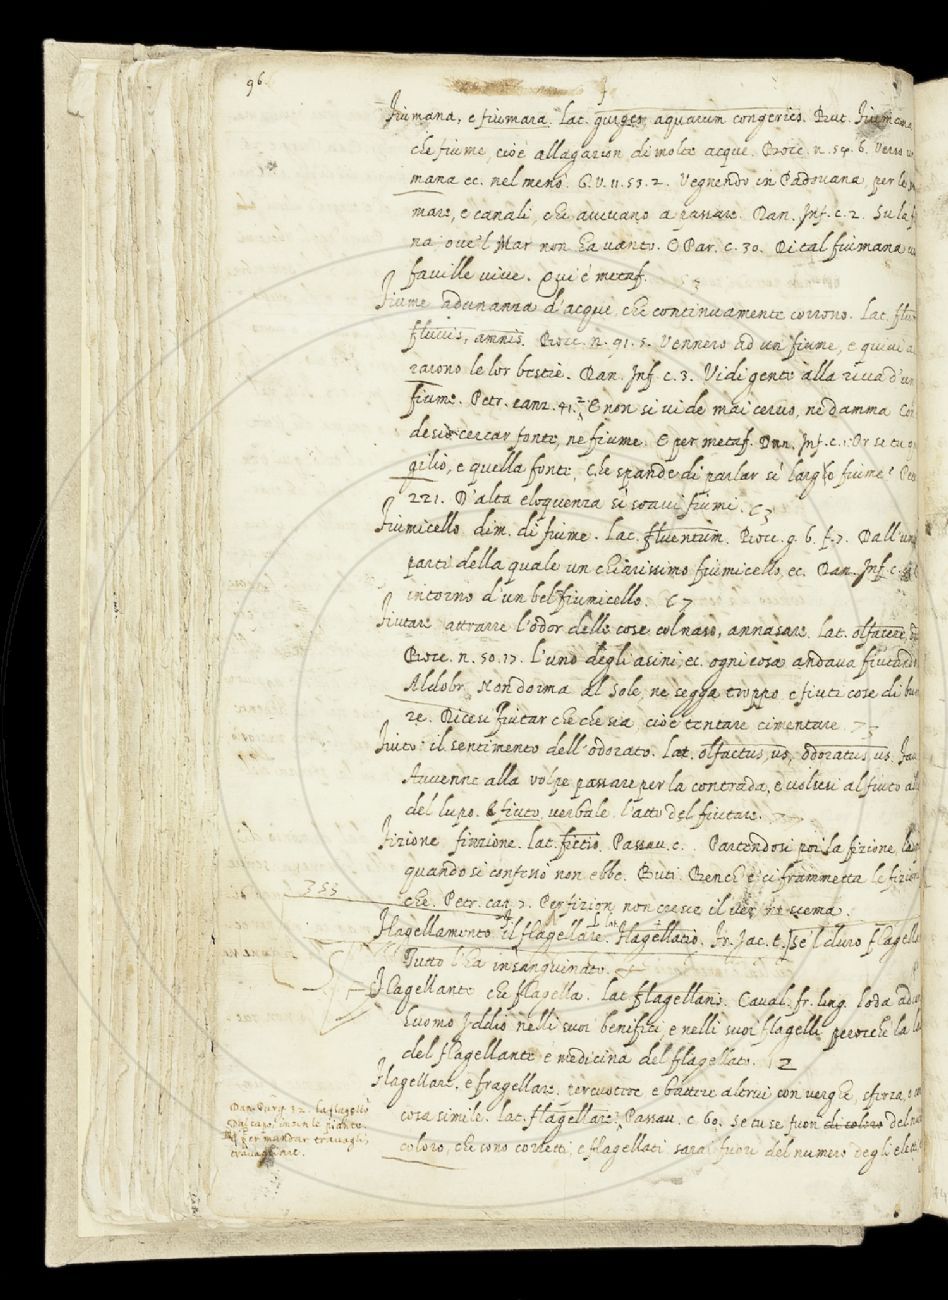 96.
F
Fiumana, e fiumara. Lat. gurges, aquarum congeries. But. Fiumana
che fiume, cioè allagazion di molte acque. Bocc. n. 54. 6. Verso
mana ec. nel menò. G. V. 11. 53. 2. Vegnendo in Padovana, per le
mare, e canali, che avevano a passare. Dan. Inf. c. 2. Su la
na, ove 'l Mar non ha vanto. E Par. c. 30. Di tal fiumana
faville vive. Qui è metaf.
Fiume adunanza d'acque, che continuamente corrono. Lat.
fluvius, amnis. Bocc. n. 91. 5. Vennero ad un fiume, e quivi
rarono le lor bestie. Dan. Inf. c. 3. Vidi gente alla riva d'un
fiume. Petr. canz. 41. E non si vide mai cervo, ne damma Con
desio cercar fonte, ne fiume. E per metaf. Dan. Inf. c. 1. Or se tu
gilio, e quella fonte, Che spande di parlar sì largo fiume?
221. D'alta eloquenza sì soavi fiumi.
Fiumicello dim. di fiume. Lat. fluentum. Bocc. g. 6. f. 7. Dall'una
parte della quale un chiarissimo fiumicello, ec. Dan. Inf. c. 4.
intorno d'un bel fiumicello.
Fiutare attrarre l'odor delle cose col naso, annasare. Lat. olfacere,
Bocc. n. 50. 17. L'uno degli asini, ec. ogni cosa andava fiutando
Aldobr. Non dorma al Sole, ne segga troppo, e fiuti cose di
re. Dicesi fiutar che che sia, cioè tentare cimentare.
Fiuto: il sentimento dell'odorato. Lat. olfactus, us, odoratus, us.
Avvenne alla volpe passare per la contrada, e volsesi al fiuto
del lupo. E fiuto verbale l'atto del fiutare.
Fizione finzione. Lat. fictio. Passav. c. Partendosi poi la fizione,
quando si confessò non ebbe. Buti. Benchè ci frammetta le fizioni
che. Petr. canz. 7. Per fizion non cresce il ver, ne scema.
355
Flagellamento il flagellare. Lat. Flagellatio. Fr. Jac. t. se 'l duro
Tutto l'ha insanguinato.
Flagellante che flagella. Lat. flagellans. Caval. fr. ling. loda
huomo Iddio nelli suoi benifici e nelli suoi flagelli perocchè la
del flagellante è medicina del flagellato.
Flagellare, e fragellare. percuotere e battere altrui con verghe, sferza,
cosa simile. Lat. flagellare. Passav. c. 60. Se tu se fuori di coloro del
coloro, che sono corretti, e flagellati, sarai fuori del numero degli eletti.
Dan. Purg. 32. La flagellò
Dal capo, insin le piante.
per mandar travagli,
travagliare.